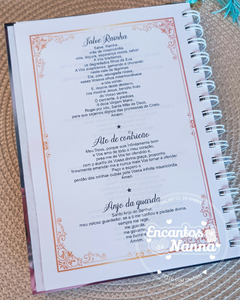 Salve Rainha
Salve, Rainha,
mãe de misericórdia,
vida, doçura, esperança nossa, salve!
A Vós bradamos,
os degredados filhos de Eva.
A Vós suspiramos, gemendo e chorando
neste vale de lágrimas.
Eia, pois, advogada nossa,
esses Vossos olhos misericordiosos
a nós volvei.
E, depois deste desterro,
nos mostrai Jesus, bendito fruto
do Vosso ventre.
Ó clemente, ó piedosa,
ó doce Virgem Maria.
Rogai por nós, Santa Mãe de Deus,
para que sejamos dignos das promessas de Cristo.
Amém.
Ato de contrição
Meu Deus, porque sois infinitamente bom
e Vos amo de todo o meu coração,
pesa-me de Vos ter ofendido e,
com o auxílio da Vossa divina graça, proponho
firmemente emendar-me e nunca mais Vos tornar a ofender.
Peço e espero o
perdão das minhas culpas pela Vossa infinita misericórdia.
Amém.
Anjo da guarda
Santo Anjo do Senhor,
meu zeloso guardador, se a ti me confiou a piedade divina,
sempre me rege,
me
Amém.
Encantos
da
Nanna